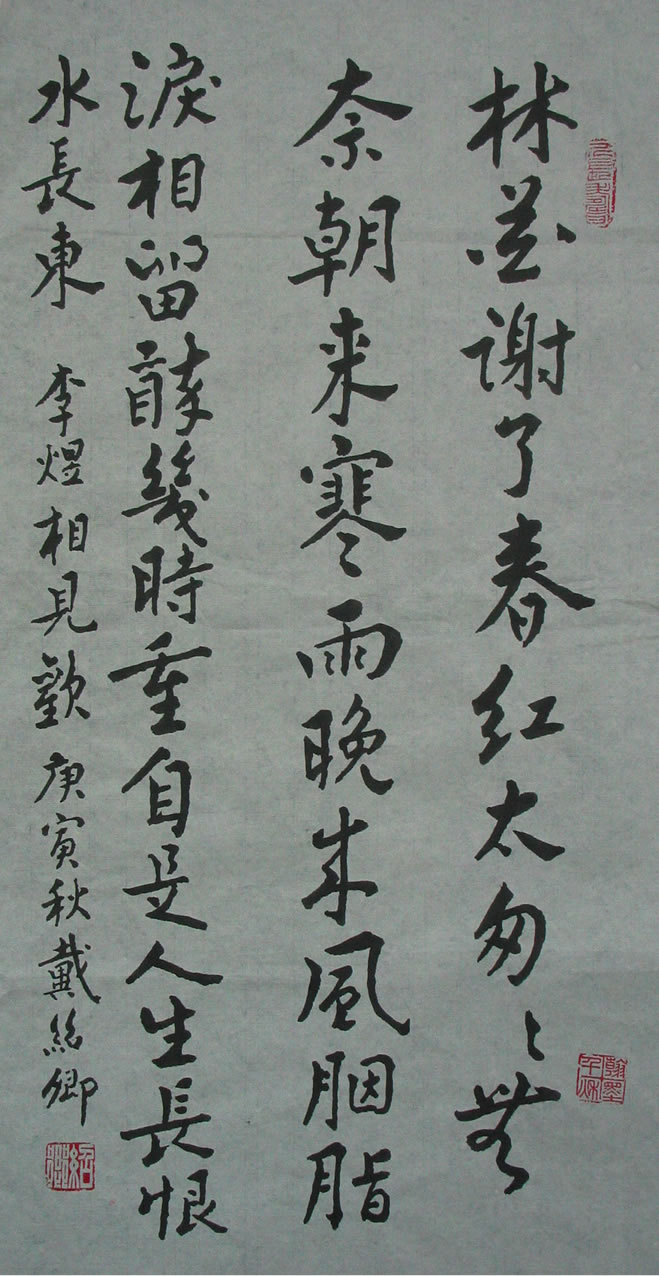 林花谢了春红太匆〻無
奈朝来寒雨晚来風胭脂
淚相留醉幾時重自是人生長恨
水長東 李煜相見歡 庚寅秋戴紹卿
翰墨千秋
紹卿